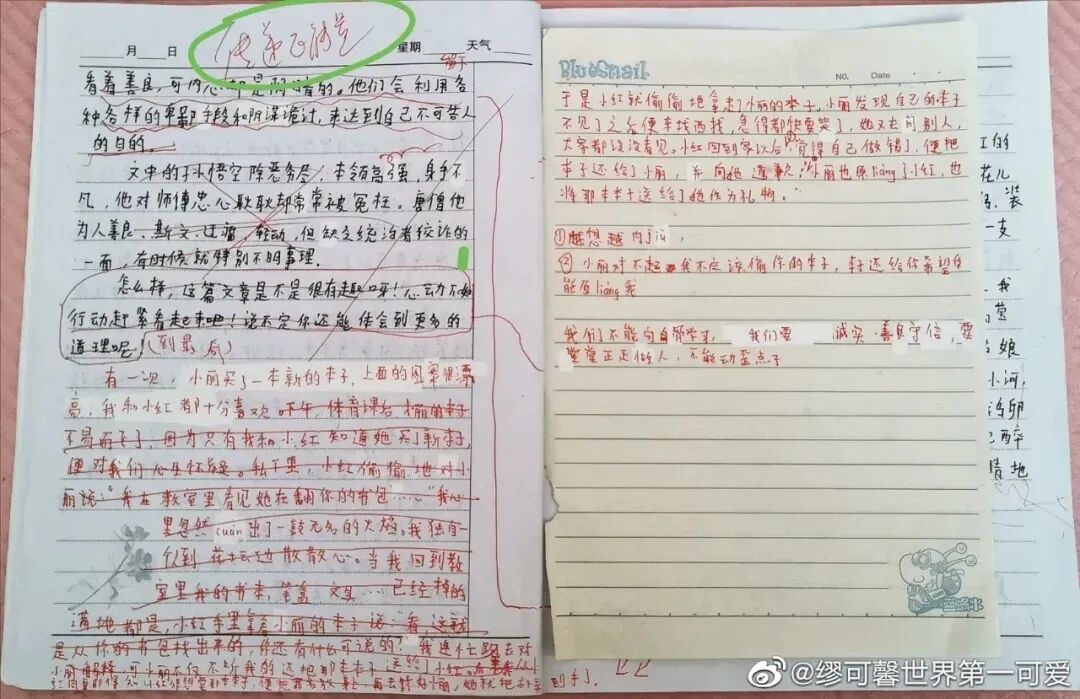 月 日 传递正能量 星期 天气
看着善良,可内心却是阴暗的。他们会利用各
种各样的卑鄙手段和阴谋诡计,来达到自己不可告人
的目的。
文中的孙悟空除恶务尽,本领高强,身手不
凡,他对师傅忠心耿耿却常常被冤枉。唐僧他
为人善良、斯文、
但缺乏统治者狡诈的
一面,有时候就特别不明事理。
怎么样,这篇文章是不是很有趣呀!心动不如
行动赶紧看起来吧!说不定你还能体会到更多的
道理呢(到最后)
有一次,小丽买了一本新的本子,上面的图案很漂
亮,我和小红都十分喜欢。下午,体育课后小丽的本子
不易而飞了,因为只有我和小红知道她买了新本子,
便对我们心生怀疑。私下里,小红偷偷地对小
丽说:“我在教室里看见她在翻你的书包……”我心
里忽然cuān出了一鼓无名的火焰。我独自一
人到花坛边散散心。当我回到教
室里我的书本,笔盒,文具……已经掉的
满地都是,小红手里拿着小丽的本子说:“看,这就
是从你的书包找出来的,你还有什么可说的?”我连忙跑去对
小丽解释,可小丽不但不听我的还把那本本子送给了小红。
BlueSnail
NO. Date
于是小红就偷偷地拿走了小丽的本子,小丽发现自己的本子
不见了之后便东找西找,急得都快要哭了,她又去问别人,
大家都说没看见。小红回到家以后,觉得自己做错了,便把
本子还给了小丽,并向她道歉。小丽也原liàng了小红,也
将那本本子送给了她作为礼物。
①越想越内jiù,
②小丽对不起,我不应该偷你的本子,本子还给你希望你
能原liàng我
我们不能向白骨精学习,我们要 诚实、善良守信,要
堂堂正正做人,不能动歪点子
蓝蜗牛
红的
花儿
装
一支
我
莹
姑娘
小河,
鹅卵
已醉
情地
到手了。
@缪可馨世界第一可爱